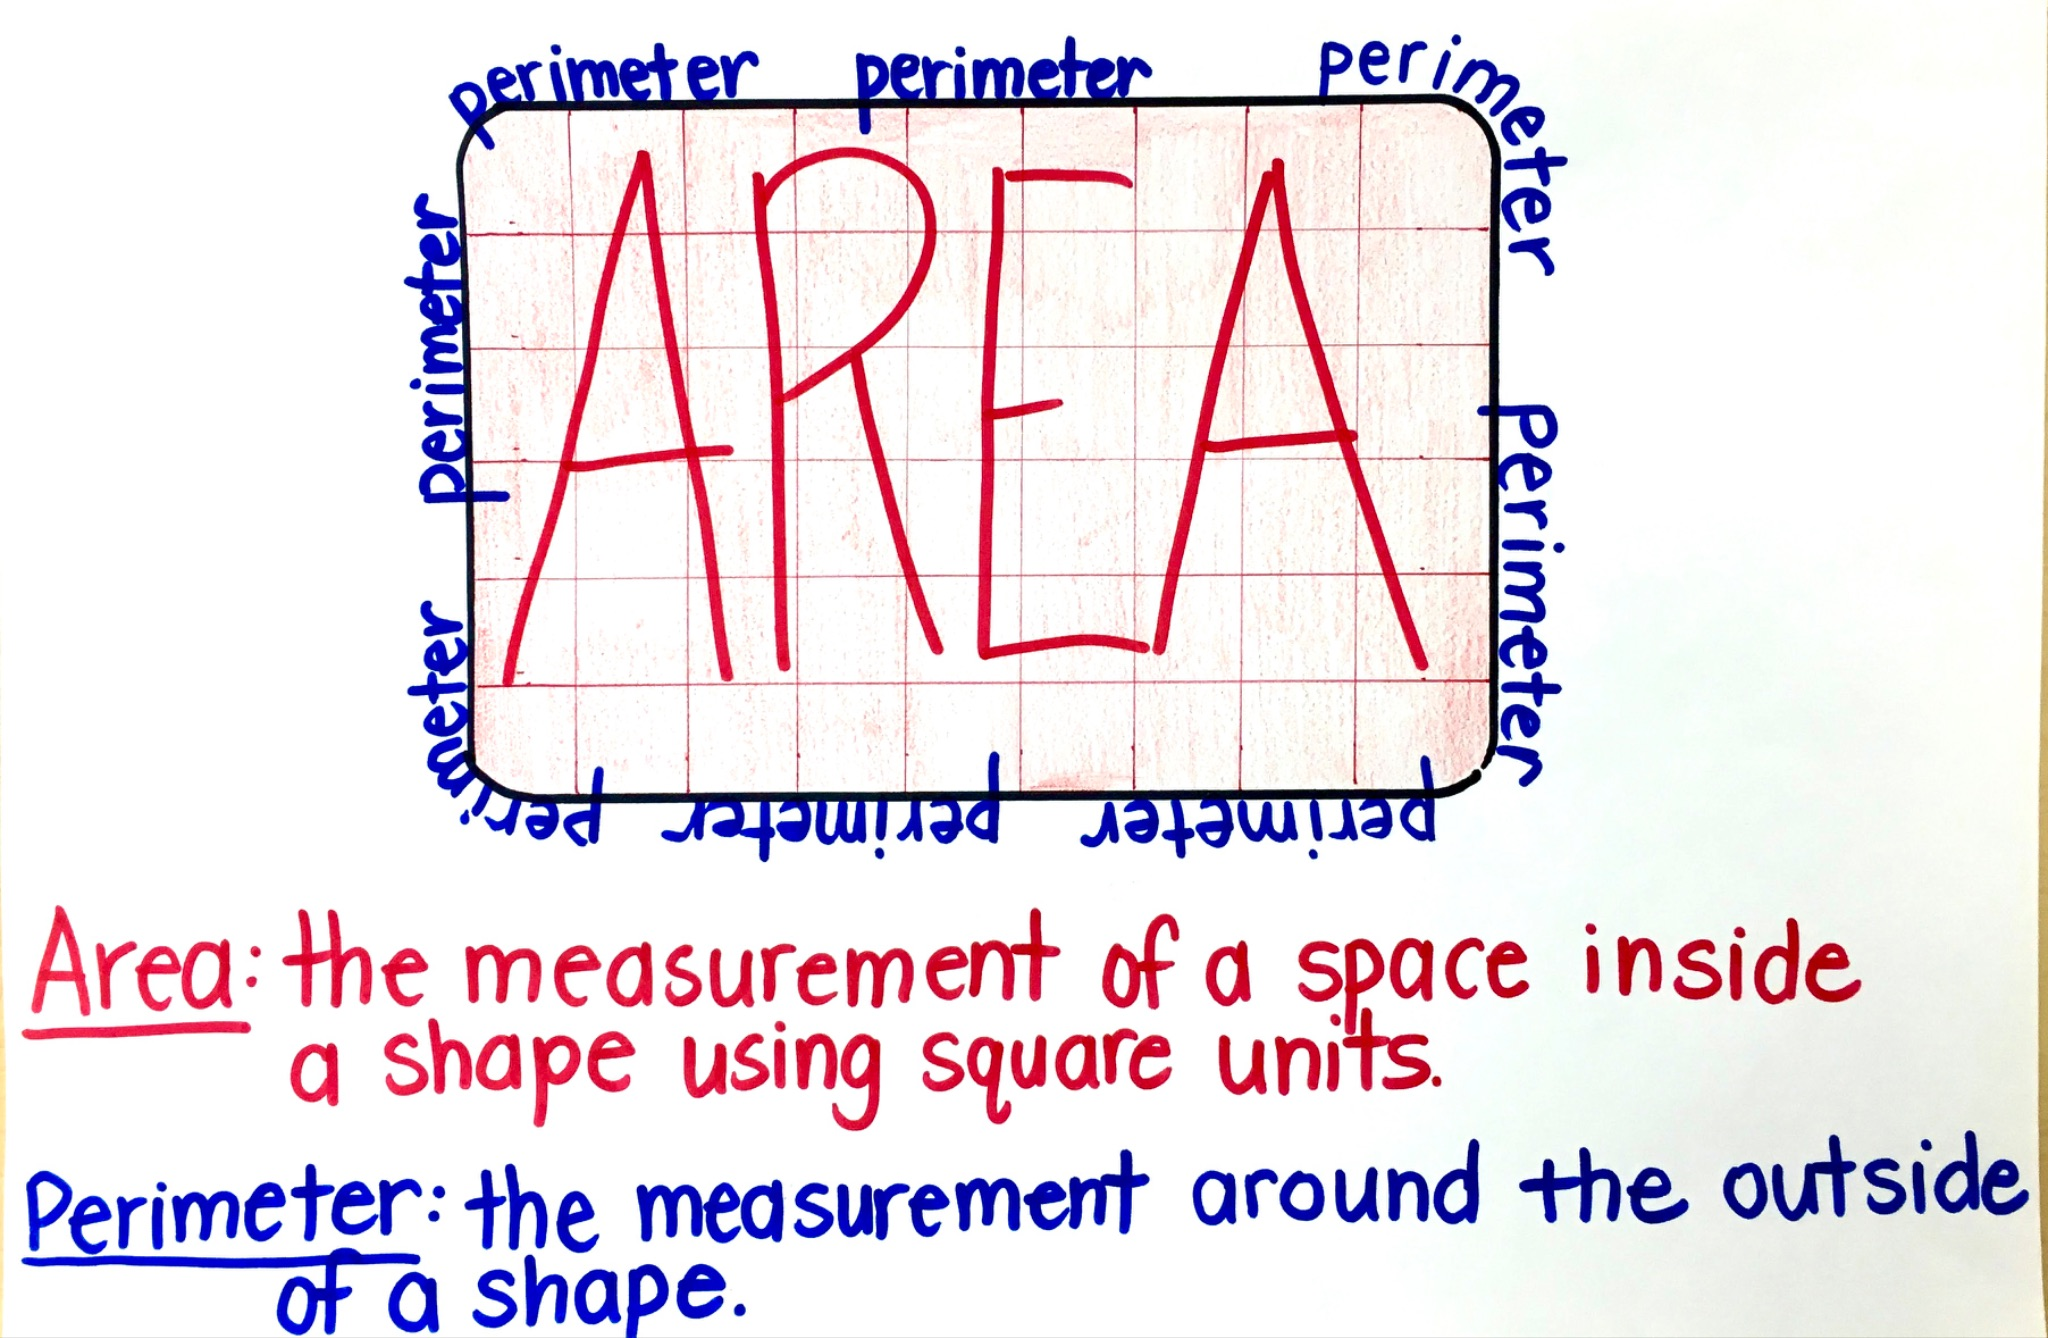 perimeter perimeter perimeter
perimeter
perimeter
perimeter
perimeter
perimeter
AREA
Area: the measurement of a space inside
a shape using square units.
Perimeter: the measurement around the outside
of a shape.